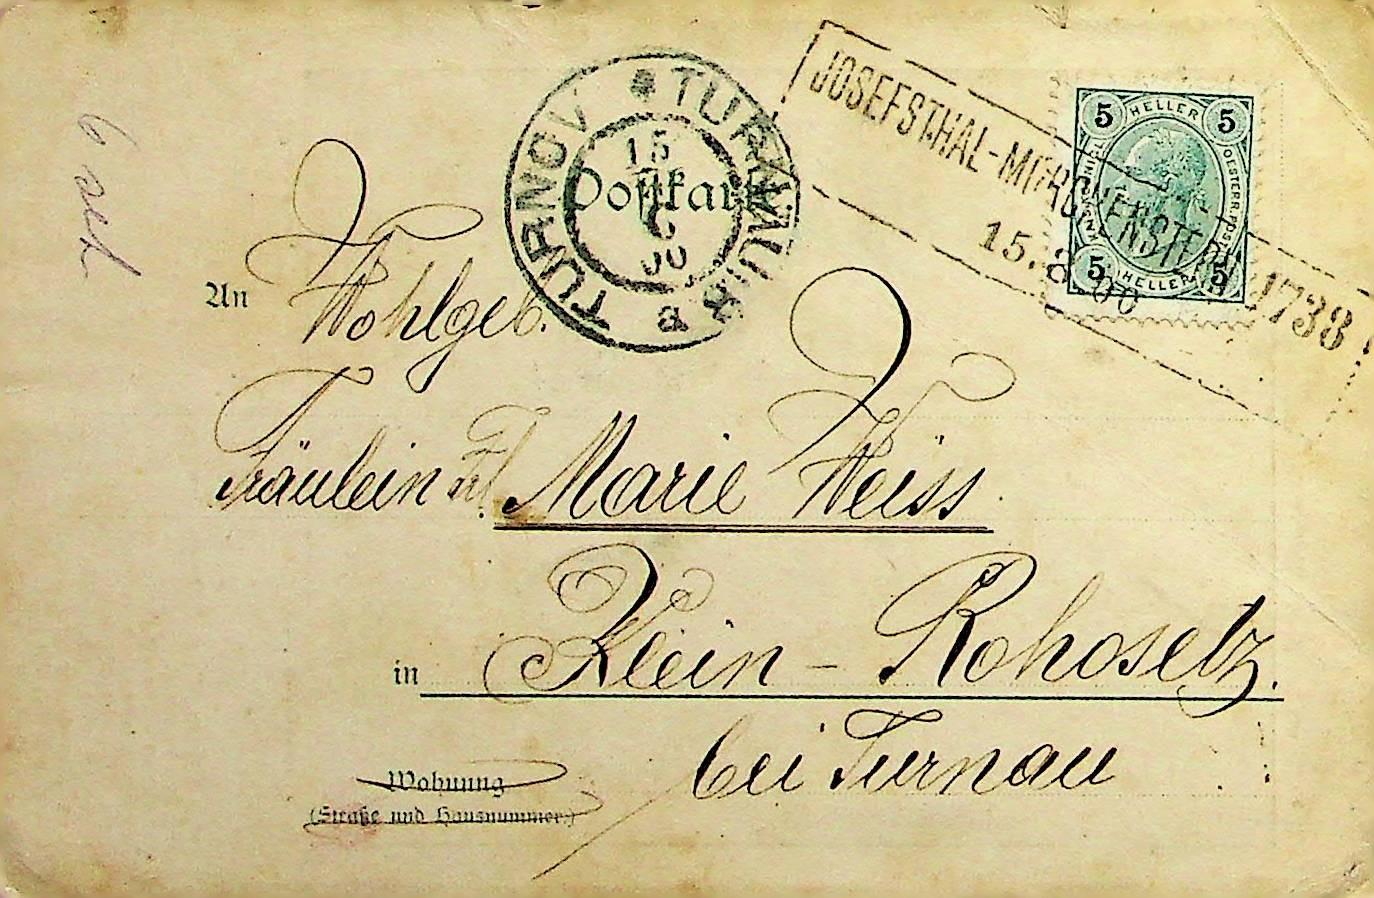 JOSEFSTHAL-MORCHENSTERN 1738
15.8.00
5 HELLER 5
5 HELLER 5
TURNAU TURNOV
15
00
Postkarte
6
An
Wohlgeb.
Fräulein Frl. Marie Weiss
in Klein-Rohosetz.
bei Turnau
Wohnung
(Straße und Hausnummer)